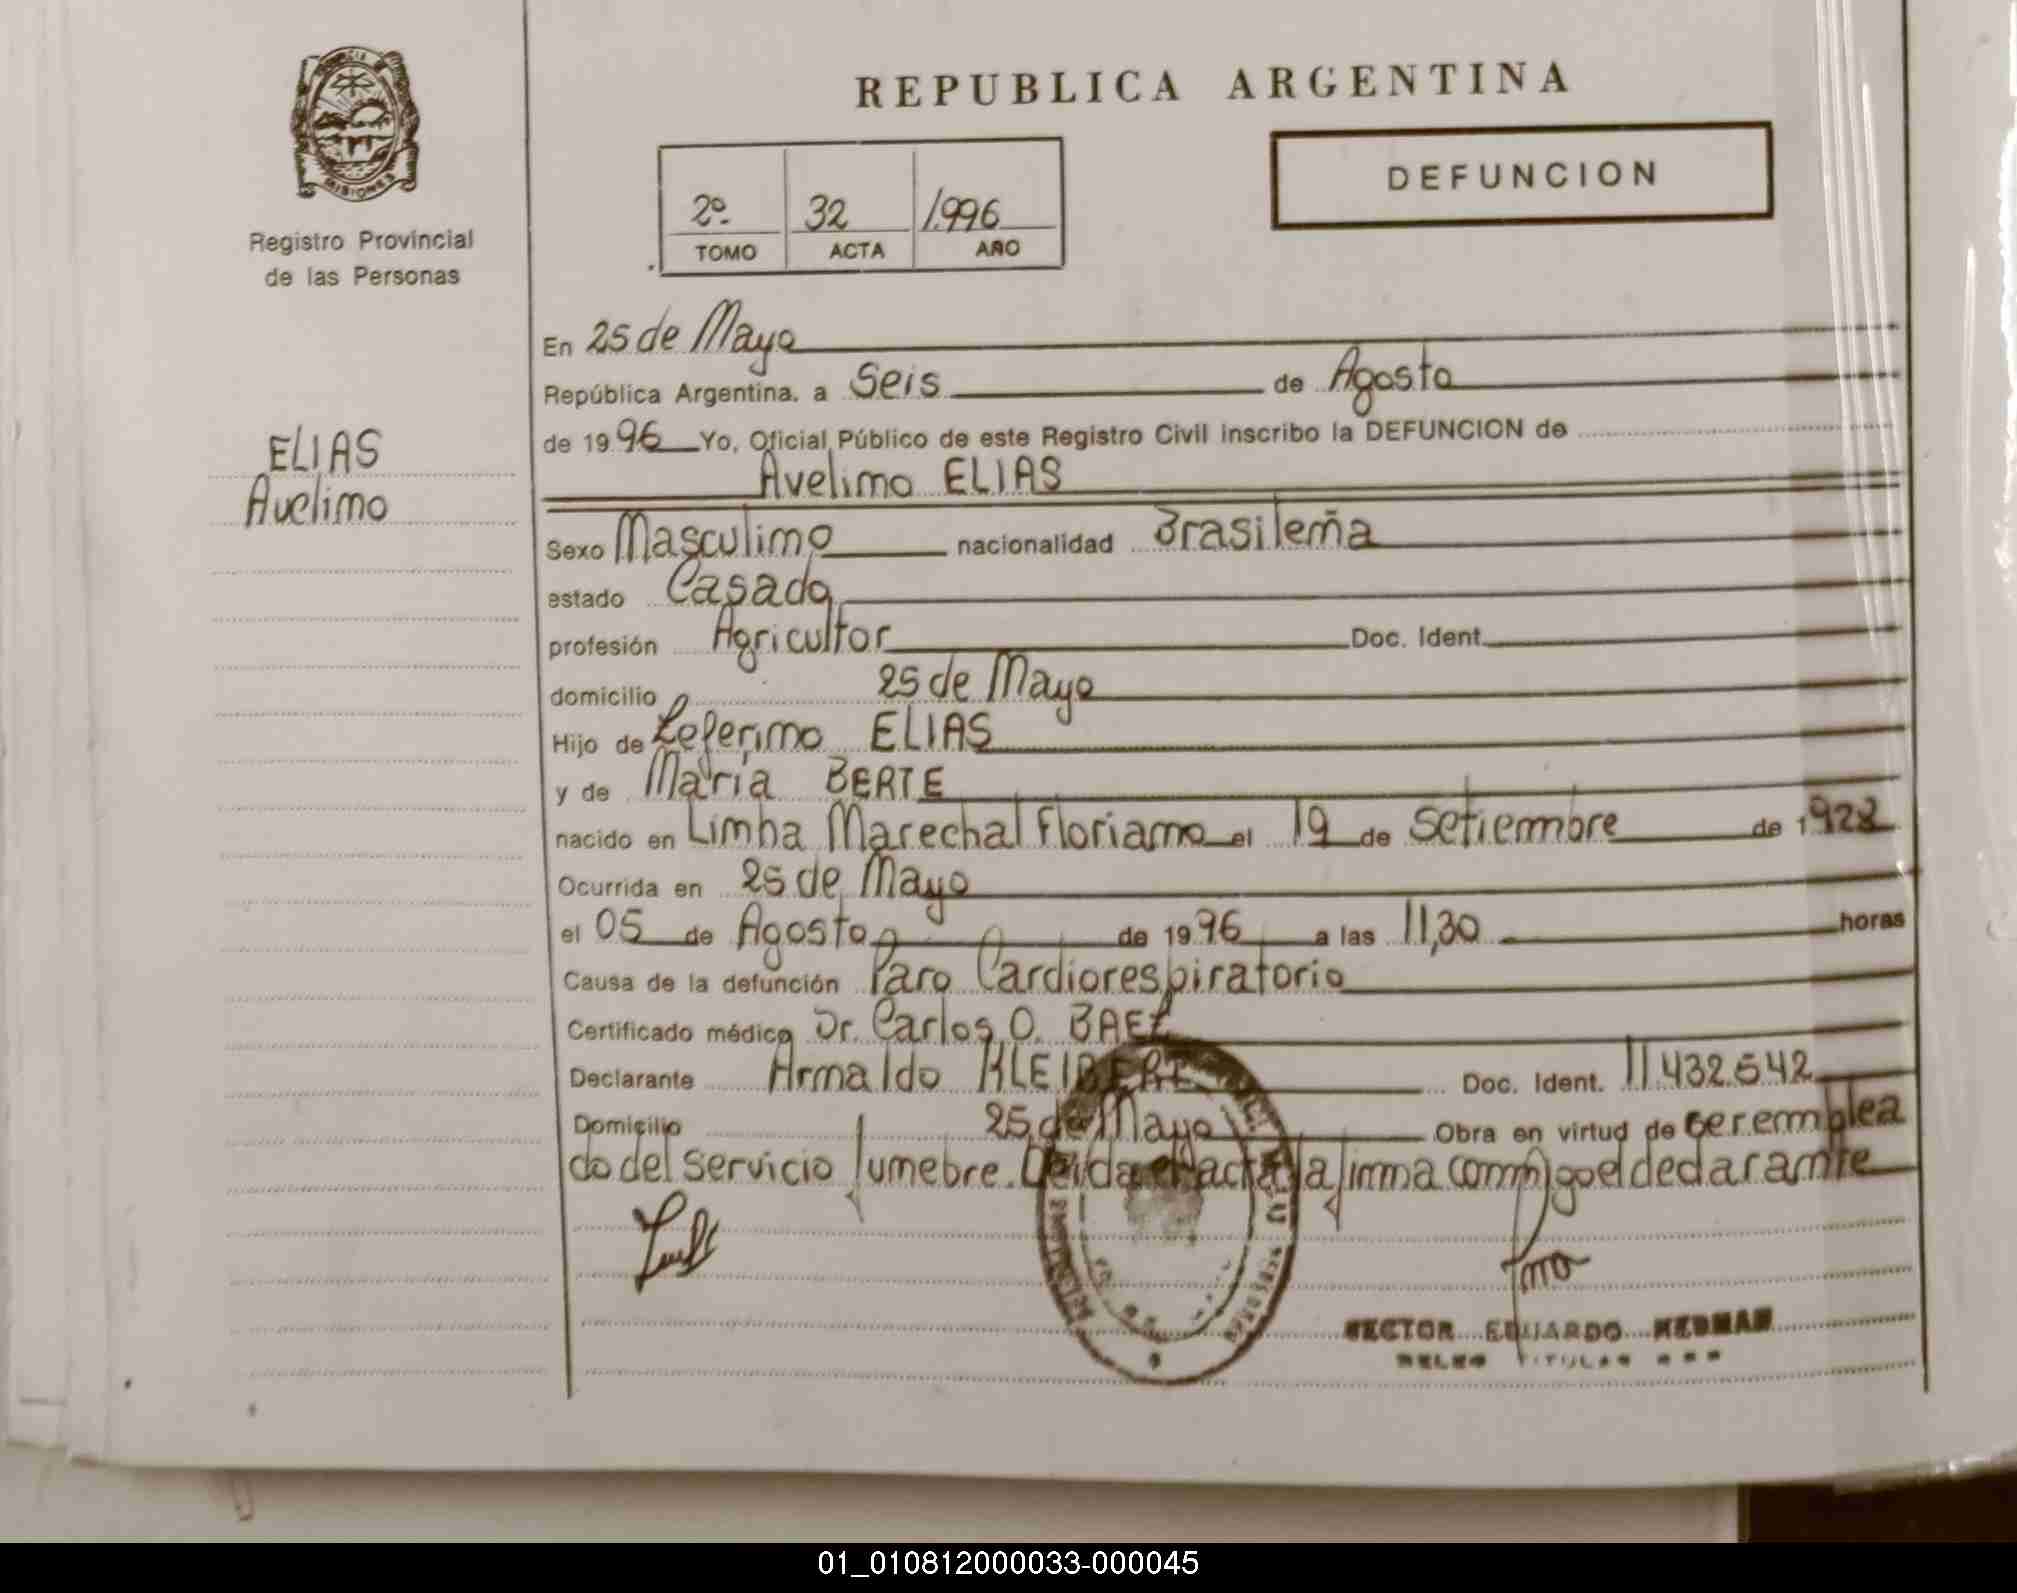 REPUBLICA ARGENTINA
DEFUNCION
PROVINCIA DE
MISIONES
Registro Provincial
de las Personas
2º 32 1.996
TOMO ACTA AÑO
ELIAS
Avelino
En 25 de Mayo
República Argentina. a Seis de Agosto
de 1996 Yo, Oficial Público de este Registro Civil inscribo la DEFUNCION de
Avelino ELIAS
Sexo Masculino nacionalidad Brasileña
estado Casado
profesión Agricultor Doc. Ident.
domicilio 25 de Mayo
Hijo de Zeferino ELIAS
y de María BERTE
nacido en Linha Marechal Floriano el 19 de Setiembre de 1928
Ocurrida en 25 de Mayo
el 05 de Agosto de 1996 a las 11,30 horas
Causa de la defunción Paro Cardiorespiratorio
Certificado médico Dr. Carlos O. BAEZ
Declarante Arnaldo KLEIBERT Doc. Ident. 11.432.542
Domicilio 25 de Mayo Obra en virtud de ser emplea
do del servicio funebre. Leída el acta la firma conmigo el declarante
HECTOR EDUARDO
TITULAR
01_010812000033-000045